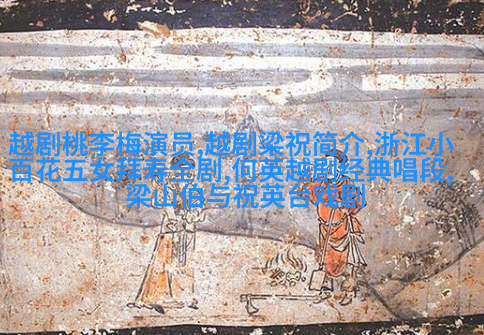 越剧桃李梅演员,越剧梁祝简介,浙江小
百花五女拜寿全剧,何英越剧经典唱段,
梁山伯与祝英台戏剧